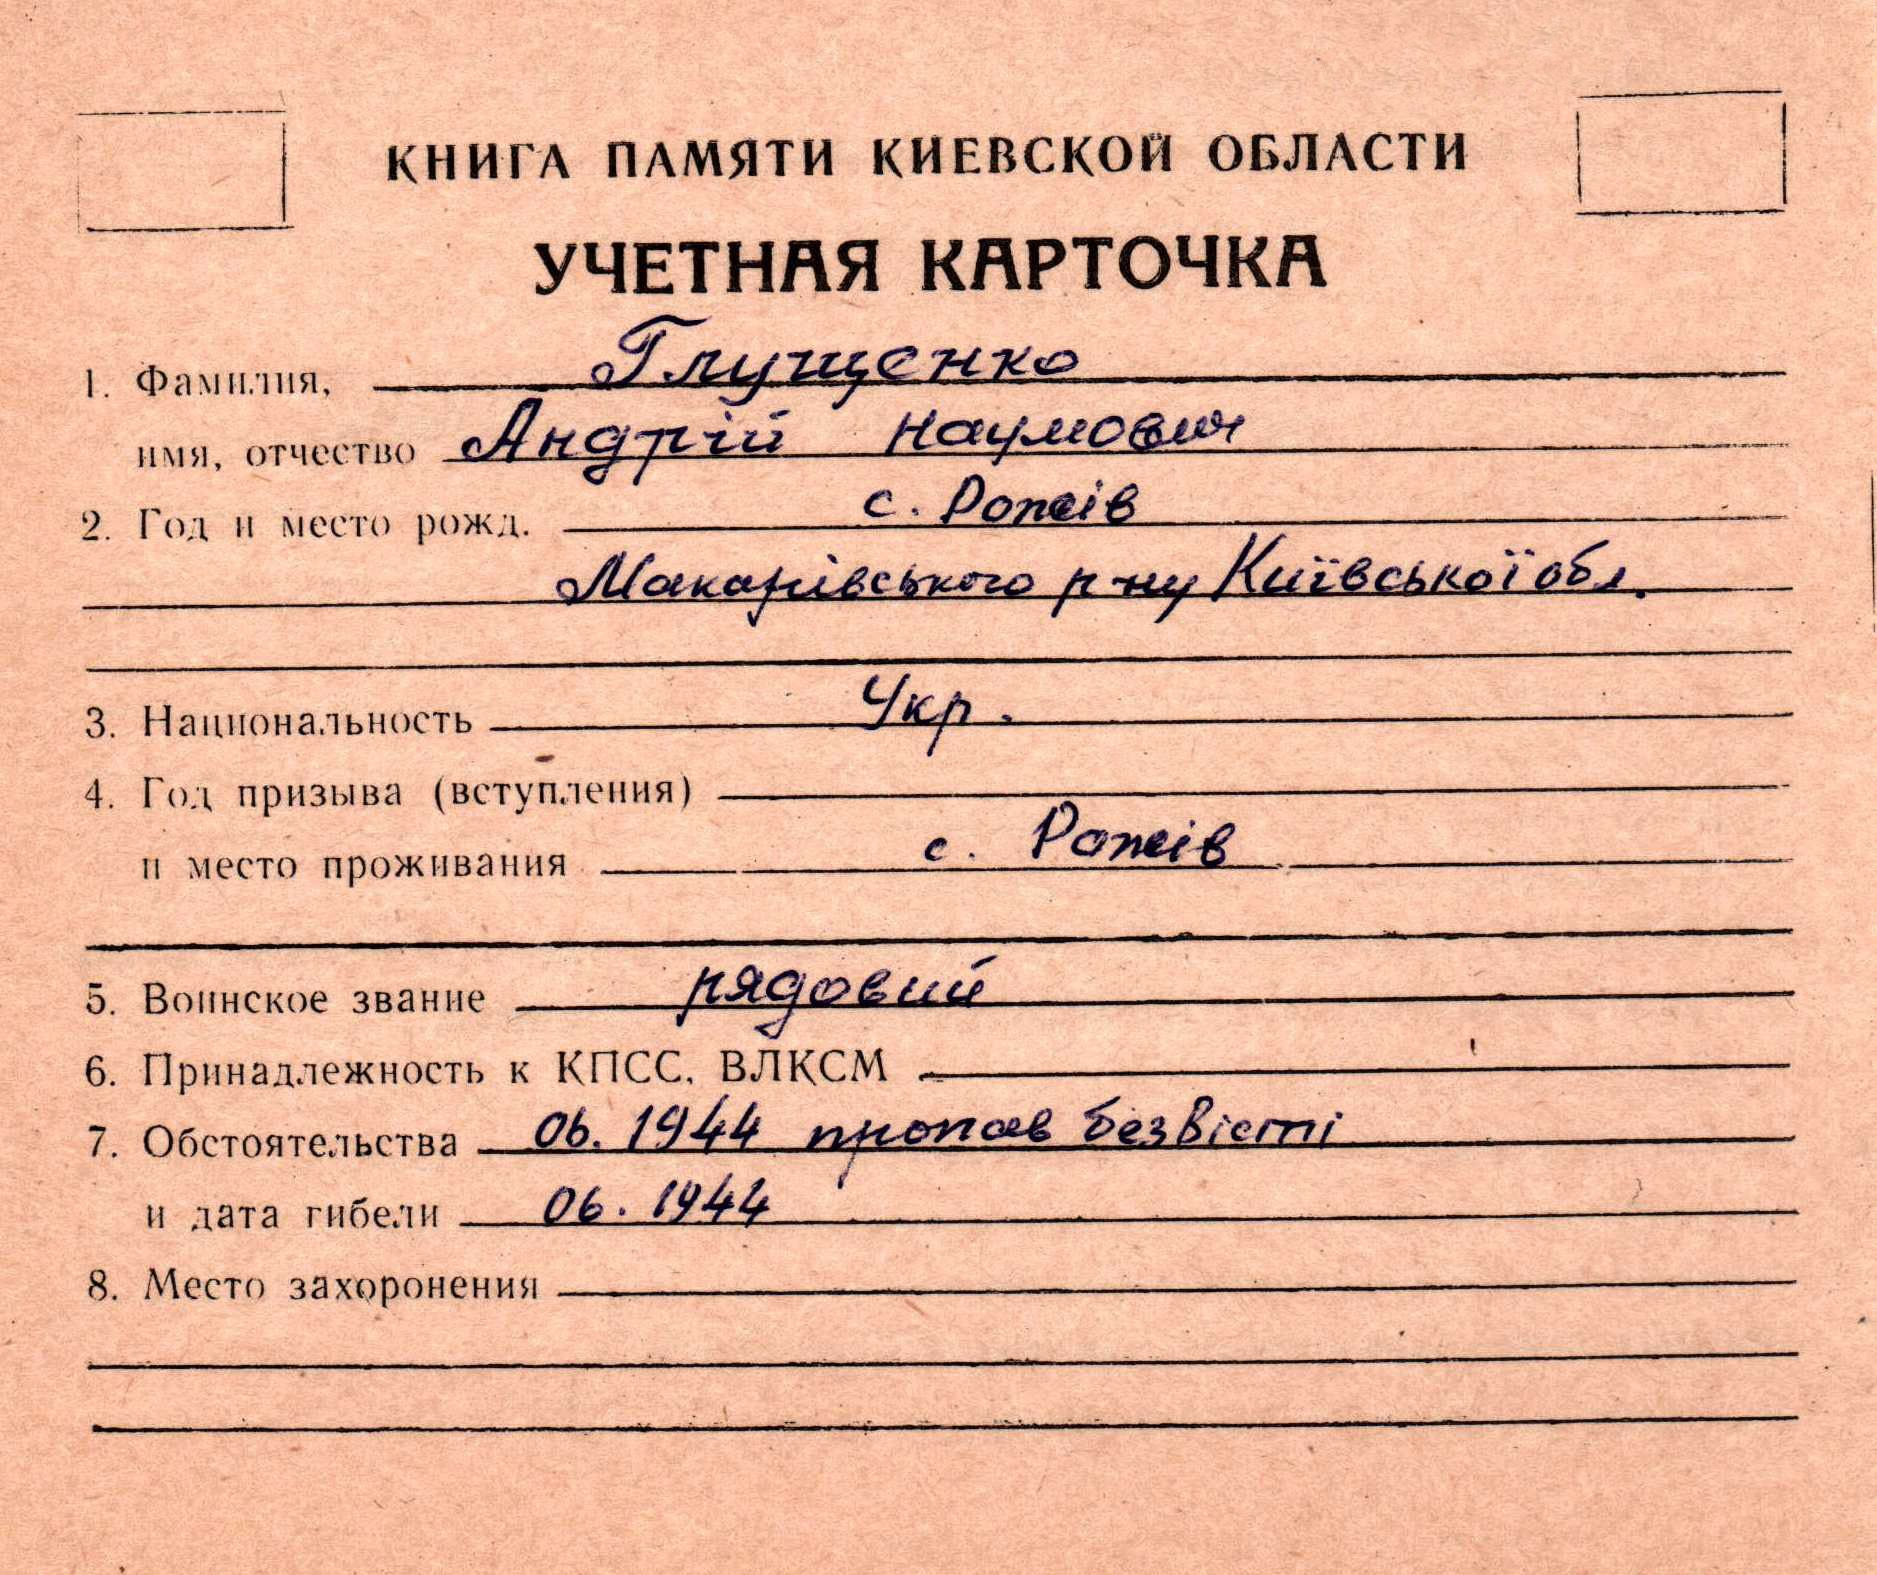 КНИГА ПАМЯТИ КИЕВСКОЙ ОБЛАСТИ
УЧЕТНАЯ КАРТОЧКА
1. Фамилия, Глущенко
имя, отчество Андрій Наумович
2. Год и место рожд. с. Рожів
Макарівського р-ну Київської обл.
3. Национальность Укр.
4. Год призыва (вступления)
и место проживания с. Рожів
5. Воинское звание рядовий
6. Принадлежность к КПСС, ВЛКСМ
7. Обстоятельства 06.1944 пропав безвісті
и дата гибели 06.1944
8. Место захоронения